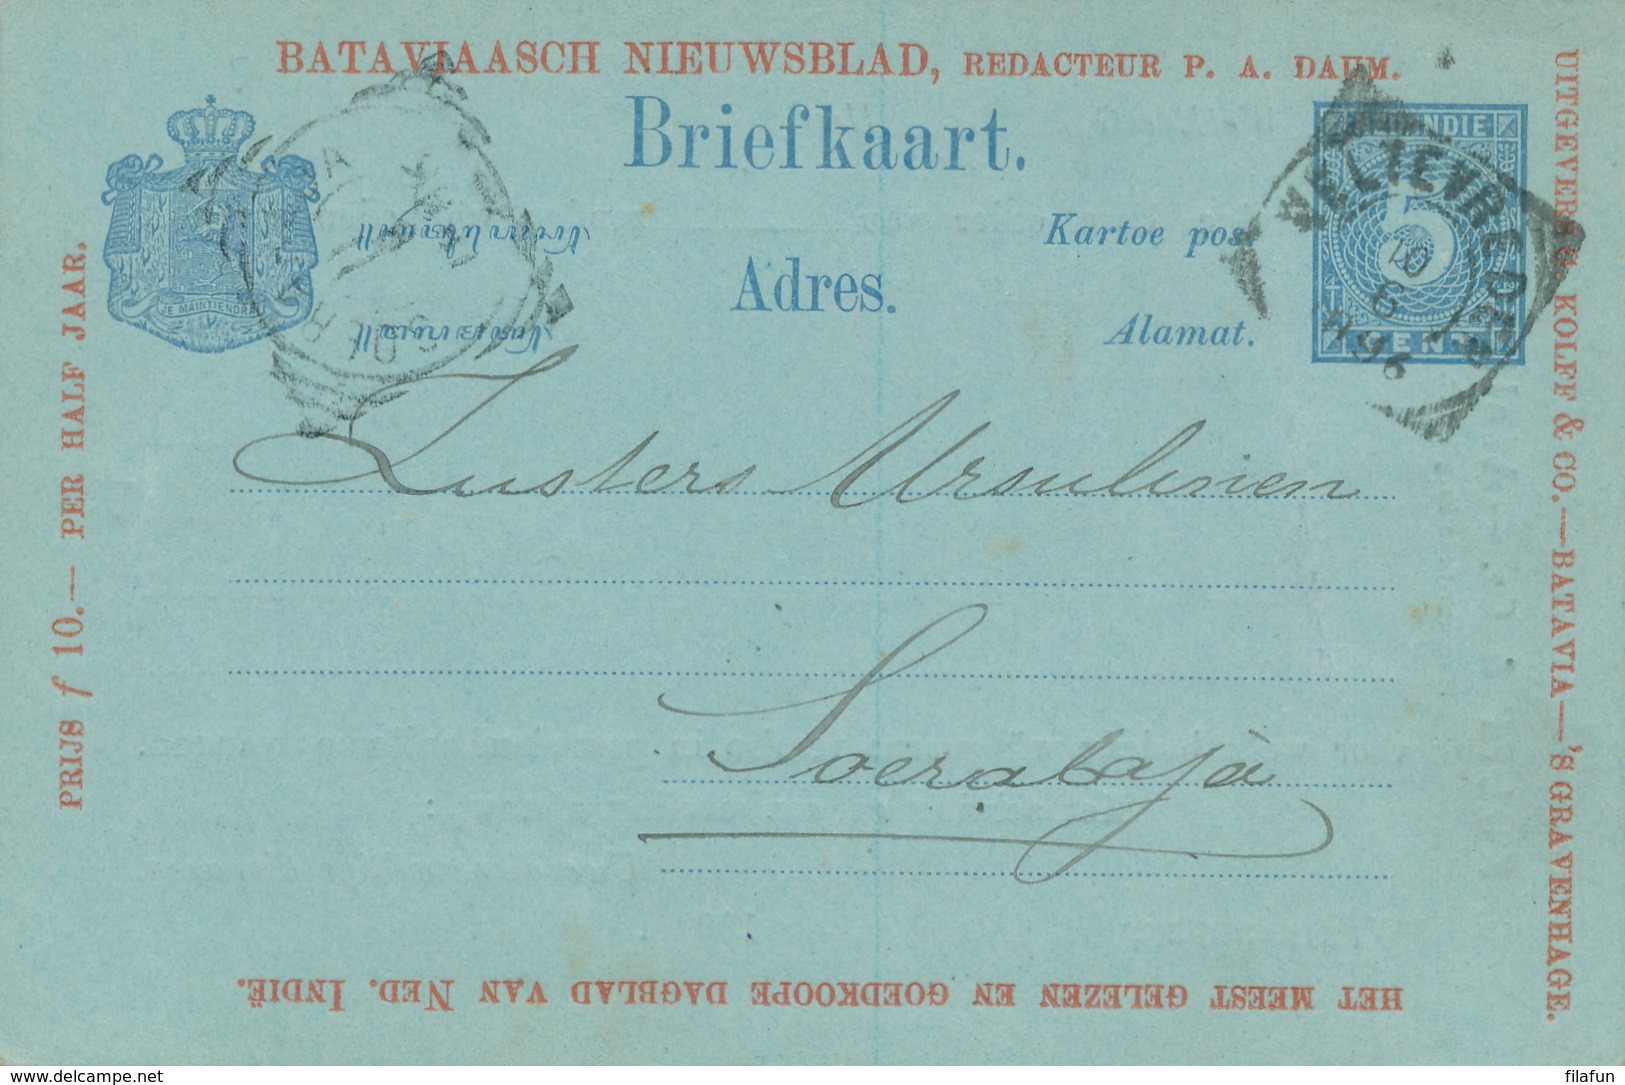 BATAVIAASCH NIEUWSBLAD, REDACTEUR P. A. DAUM.
Briefkaart.
INDIE
5
CENT
WELTEVREDEN
10
6
96
Kartoe pos.
Adres.
Alamat.
JE MAINTIENDRAI
Zusters Ursulinen
Soerabajà
PRIJS f 10.— PER HALF JAAR.
UITGEVERS G. KOLFF & CO.—BATAVIA—'S GRAVENHAGE.
HET MEEST GELEZEN EN GOEDKOOPE DAGBLAD VAN NED. INDIË.
www.delcampe.net
filafun